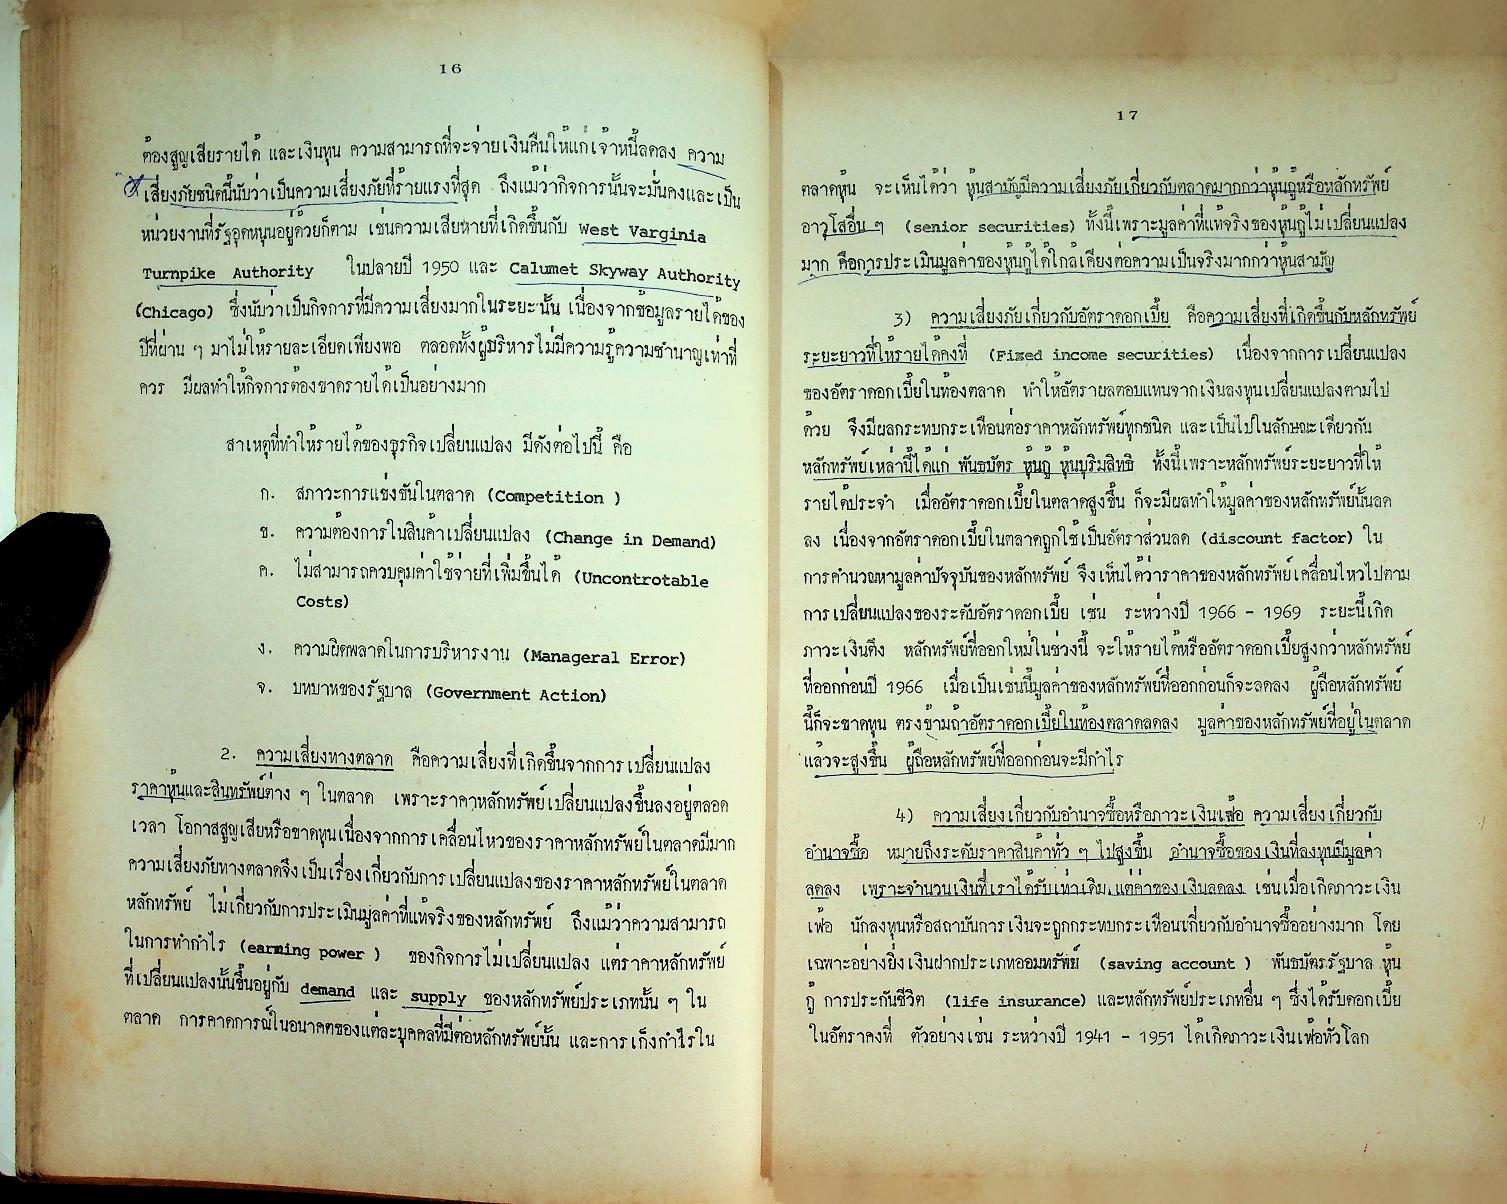 16
ต้องสูญเสียรายได้ และเงินทุน ความสามารถที่จะจ่ายเงินคืนให้แก่เจ้าหนี้ลดลง ความ
เสี่ยงภัยชนิดนี้นับว่าเป็นความเสี่ยงภัยที่ร้ายแรงที่สุด ถึงแม้ว่ากิจการนั้นจะมั่นคงและเป็น
หน่วยงานที่รัฐอุดหนุนอยู่ด้วยก็ตาม เช่นความเสียหายที่เกิดขึ้นกับ West Varginia
Turnpike Authority ในปลายปี 1950 และ Calumet Skyway Authority
(Chicago) ซึ่งนับว่าเป็นกิจการที่มีความเสี่ยงมากในระยะนั้น เนื่องจากข้อมูลรายได้ของ
ปีที่ผ่าน ๆ มาไม่ให้รายละเอียดเพียงพอ ตลอดทั้งผู้บริหารไม่มีความรู้ความชำนาญเท่าที่
ควร มีผลทำให้กิจการต้องขาดรายได้เป็นอย่างมาก
สาเหตุที่ทำให้รายได้ของธุรกิจเปลี่ยนแปลง มีดังต่อไปนี้ คือ
ก. สภาวะการแข่งขันในตลาด (Competition )
ข. ความต้องการในสินค้าเปลี่ยนแปลง (Change in Demand)
ค. ไม่สามารถควบคุมค่าใช้จ่ายที่เพิ่มขึ้นได้ (Uncontrotable
Costs)
ง. ความผิดพลาดในการบริหารงาน (Manageral Error)
จ. บทบาทของรัฐบาล (Government Action)
2. ความเสี่ยงทางตลาด คือความเสี่ยงที่เกิดขึ้นจากการเปลี่ยนแปลง
ราคาหุ้นและสินทรัพย์ต่าง ๆ ในตลาด เพราะราคาหลักทรัพย์เปลี่ยนแปลงขึ้นลงอยู่ตลอด
เวลา โอกาสสูญเสียหรือขาดทุนเนื่องจากการเคลื่อนไหวของราคาหลักทรัพย์ในตลาดมีมาก
ความเสี่ยงภัยทางตลาดจึงเป็นเรื่องเกี่ยวกับการเปลี่ยนแปลงของราคาหลักทรัพย์ในตลาด
หลักทรัพย์ ไม่เกี่ยวกับการประเมินมูลค่าที่แท้จริงของหลักทรัพย์ ถึงแม้ว่าความสามารถ
ในการทำกำไร (earning power ) ของกิจการไม่เปลี่ยนแปลง แต่ราคาหลักทรัพย์
ที่เปลี่ยนแปลงนั้นขึ้นอยู่กับ demand และ supply ของหลักทรัพย์ประเภทนั้น ๆ ใน
ตลาด การคาดการณ์ในอนาคตของแต่ละบุคคลที่มีต่อหลักทรัพย์นั้น และการเก็งกำไรใน
17
ตลาดหุ้น จะเห็นได้ว่า หุ้นสามัญมีความเสี่ยงภัยเกี่ยวกับตลาดมากกว่าหุ้นกู้หรือหลักทรัพย์
อาวุโสอื่น ๆ (senior securities) ทั้งนี้เพราะมูลค่าที่แท้จริงของหุ้นกู้ไม่เปลี่ยนแปลง
มาก คือการประเมินมูลค่าของหุ้นกู้ได้ใกล้เคียงต่อความเป็นจริงมากกว่าหุ้นสามัญ
3) ความเสี่ยงภัยเกี่ยวกับอัตราดอกเบี้ย คือความเสี่ยงที่เกิดขึ้นกับหลักทรัพย์
ระยะยาวที่ให้รายได้คงที่ (Fixed income securities) เนื่องจากการเปลี่ยนแปลง
ของอัตราดอกเบี้ยในท้องตลาด ทำให้อัตราผลตอบแทนจากเงินลงทุนเปลี่ยนแปลงตามไป
ด้วย จึงมีผลกระทบกระเทือนต่อราคาหลักทรัพย์ทุกชนิด และเป็นไปในลักษณะเดียวกัน
หลักทรัพย์เหล่านี้ได้แก่ พันธบัตร หุ้นกู้ หุ้นบุริมสิทธิ ทั้งนี้เพราะหลักทรัพย์ระยะยาวที่ให้
รายได้ประจำ เมื่ออัตราดอกเบี้ยในตลาดสูงขึ้น ก็จะมีผลทำให้มูลค่าของหลักทรัพย์นั้นลด
ลง เนื่องจากอัตราดอกเบี้ยในตลาดถูกใช้เป็นอัตราส่วนลด (discount factor) ใน
การคำนวณหามูลค่าปัจจุบันของหลักทรัพย์ จึงเห็นได้ว่าราคาของหลักทรัพย์เคลื่อนไหวไปตาม
การเปลี่ยนแปลงของระดับอัตราดอกเบี้ย เช่น ระหว่างปี 1966 - 1969 ระยะนี้เกิด
ภาวะเงินตึง หลักทรัพย์ที่ออกใหม่ในช่วงนี้ จะให้รายได้หรืออัตราดอกเบี้ยสูงกว่าหลักทรัพย์
ที่ออกก่อนปี 1966 เมื่อเป็นเช่นนี้มูลค่าของหลักทรัพย์ที่ออกก่อนก็จะลดลง ผู้ถือหลักทรัพย์
นี้ก็จะขาดทุน ตรงข้ามถ้าอัตราดอกเบี้ยในท้องตลาดลดลง มูลค่าของหลักทรัพย์ที่อยู่ในตลาด
แล้วจะสูงขึ้น ผู้ถือหลักทรัพย์ที่ออกก่อนจะมีกำไร
4) ความเสี่ยงเกี่ยวกับอำนาจซื้อหรือภาวะเงินเฟ้อ ความเสี่ยงเกี่ยวกับ
อำนาจซื้อ หมายถึงระดับราคาสินค้าทั่ว ๆ ไปสูงขึ้น อำนาจซื้อของเงินที่ลงทุนมีมูลค่า
ลดลง เพราะจำนวนเงินที่เราได้รับเท่าเดิม แต่ค่าของเงินลดลง เช่นเมื่อเกิดภาวะเงิน
เฟ้อ นักลงทุนหรือสถาบันการเงินจะถูกกระทบกระเทือนเกี่ยวกับอำนาจซื้ออย่างมาก โดย
เฉพาะอย่างยิ่งเงินฝากประเภทออมทรัพย์ (saving account ) พันธบัตรรัฐบาล หุ้น
กู้ การประกันชีวิต (life insurance) และหลักทรัพย์ประเภทอื่น ๆ ซึ่งได้รับดอกเบี้ย
ในอัตราคงที่ ตัวอย่างเช่น ระหว่างปี 1941 - 1951 ได้เกิดภาวะเงินเฟ้อทั่วโลก